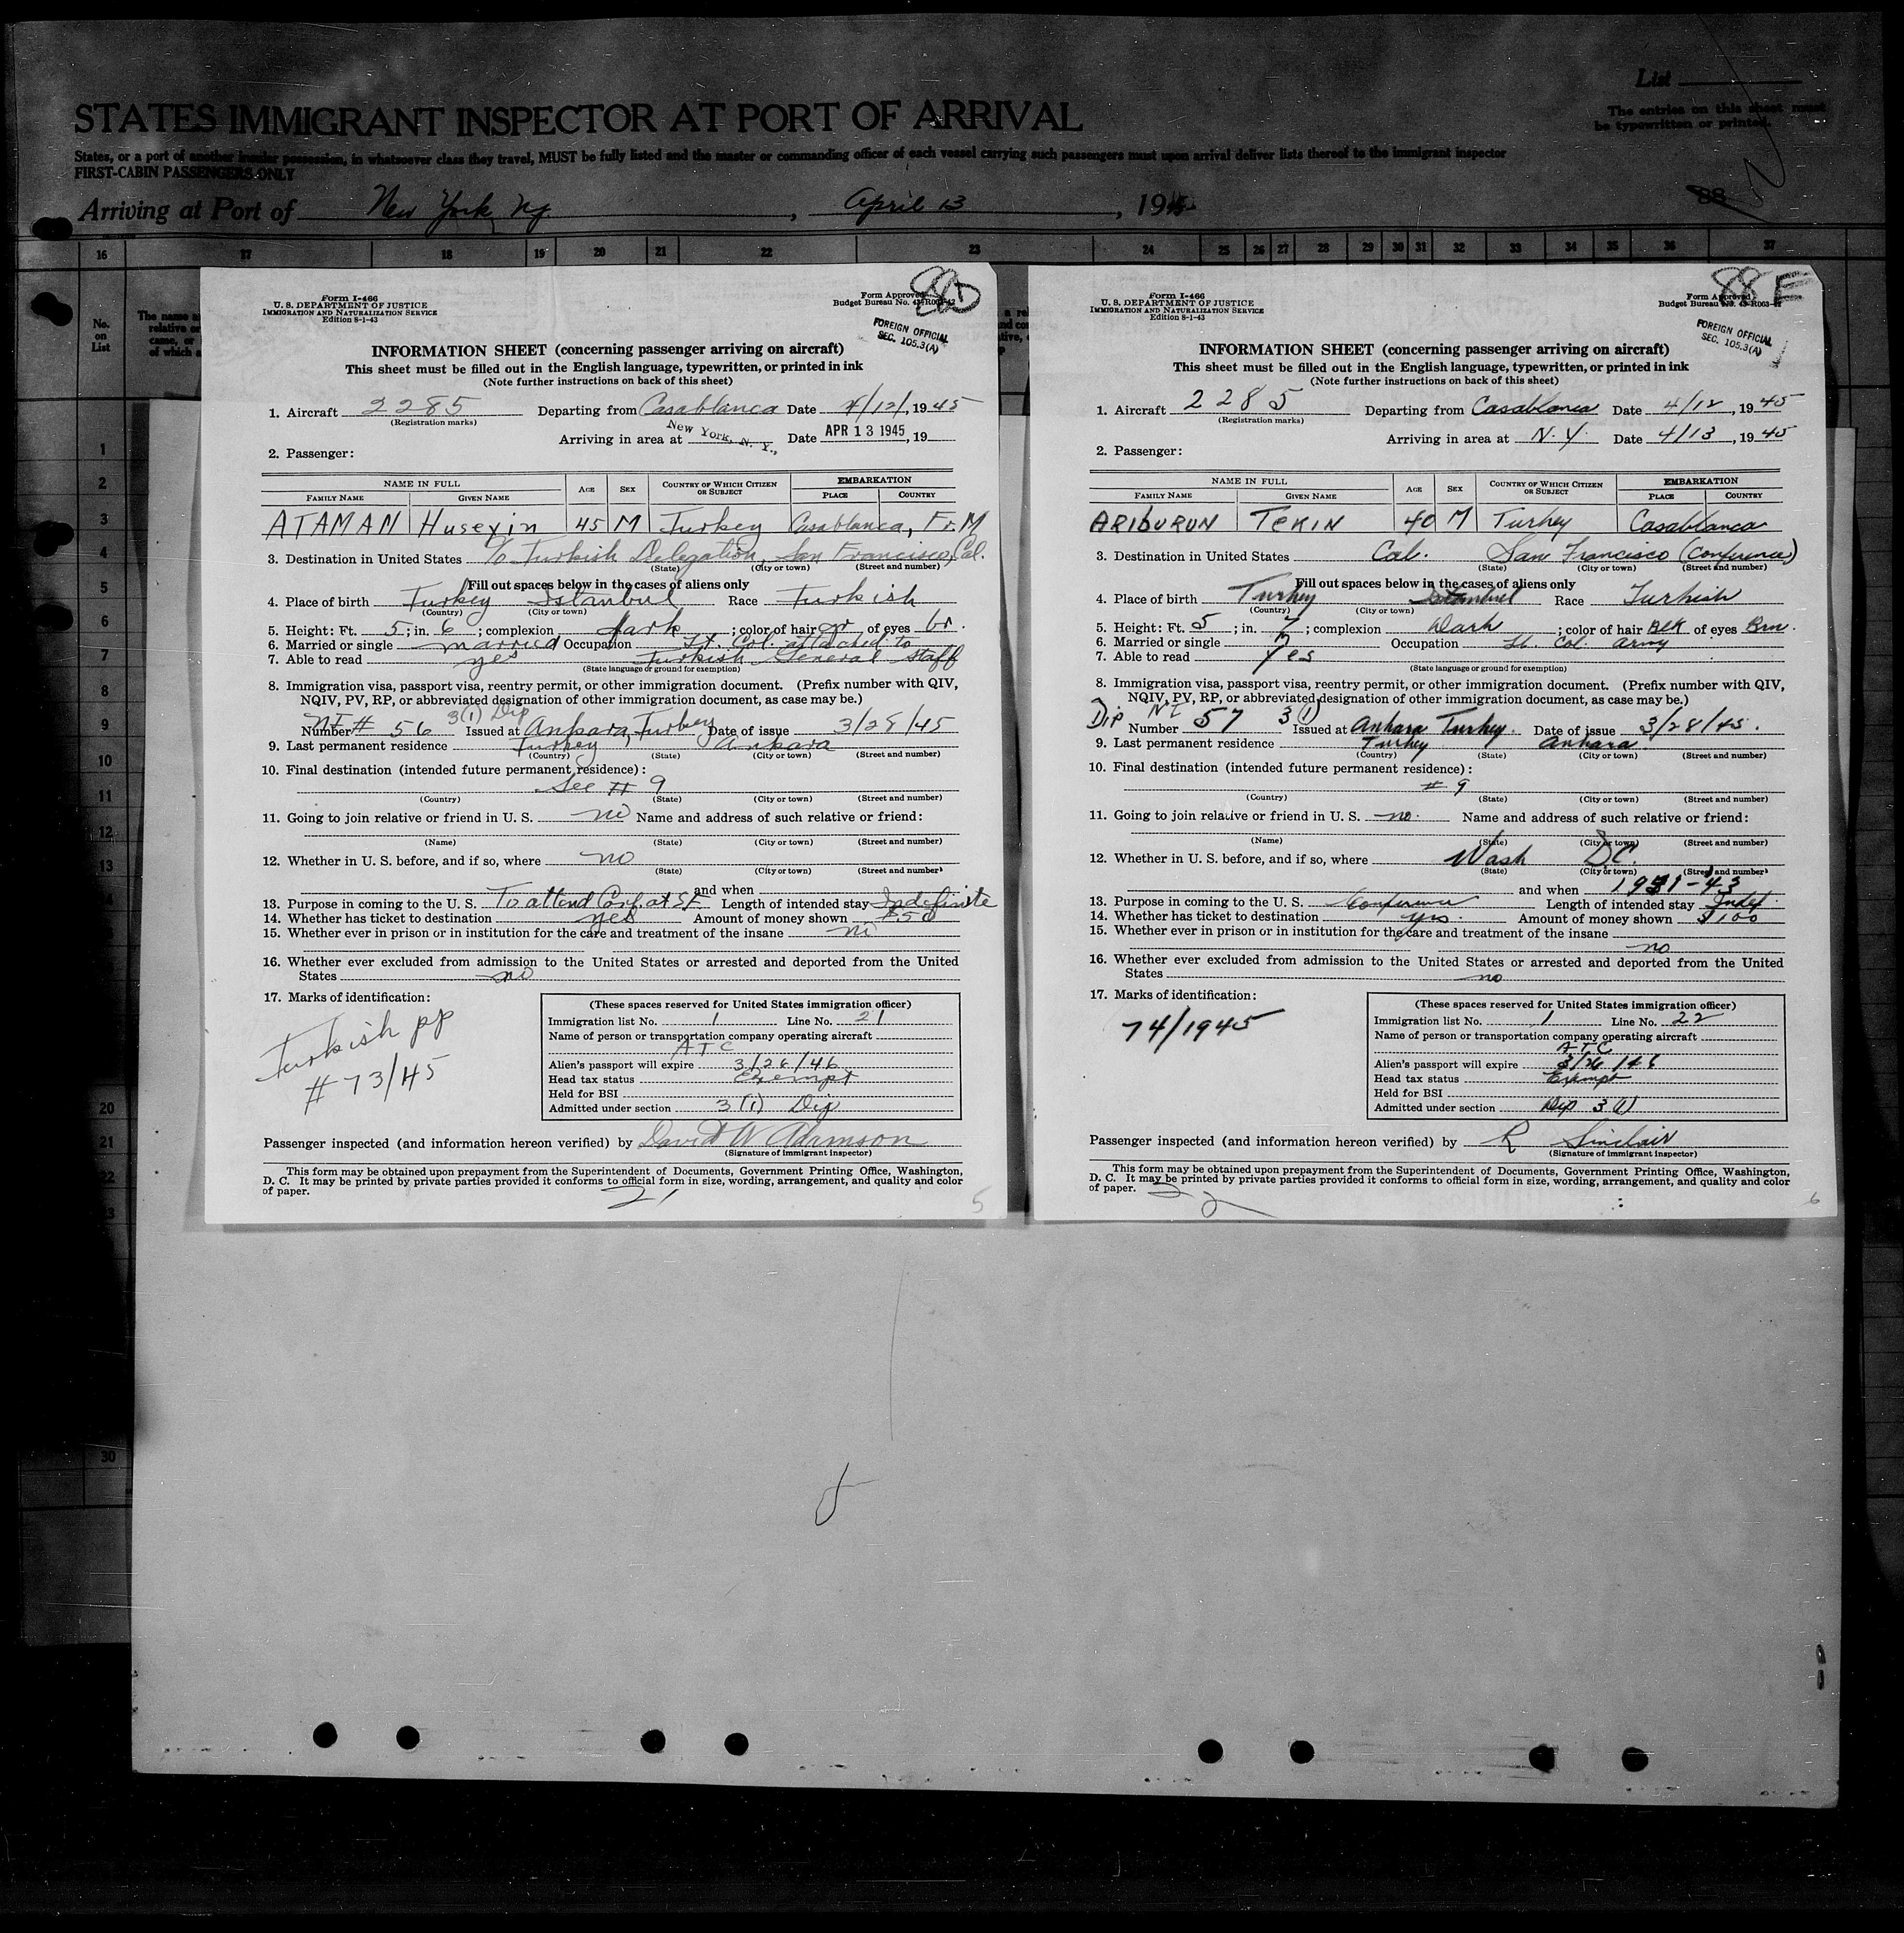 List
The entries on this sheet must
be typewritten or printed.
STATES IMMIGRANT INSPECTOR AT PORT OF ARRIVAL
States, or a port of another insular possession, in whatsoever class they travel, MUST be fully listed and the master or commanding officer of each vessel carrying such passengers must upon arrival deliver lists thereof to the immigrant inspector
FIRST-CABIN PASSENGERS ONLY
Arriving at Port of New York, Ny. , April 13 , 19
88
16 17 18 19 20 21 22 23 24 25 26 27 28 29 30 31 32 33 34 35 36 37
No.
on
List
1
2
3
4
5
6
7
8
9
10
11
12
13
14
20
21
22
30
Form I-466
U. S. DEPARTMENT OF JUSTICE
IMMIGRATION AND NATURALIZATION SERVICE
Edition 8-1-43
Form Approved
Budget Bureau No. 43-R063-42
FOREIGN OFFICIAL
SEC. 105.3(A)
INFORMATION SHEET (concerning passenger arriving on aircraft)
This sheet must be filled out in the English language, typewritten, or printed in ink
(Note further instructions on back of this sheet)
1. Aircraft 2285 Departing from Casablanca Date 4/12/, 1945
(Registration marks)
Arriving in area at New York, N. Y., Date APR 13 1945, 19
2. Passenger:
NAME IN FULL AGE SEX COUNTRY OF WHICH CITIZEN OR SUBJECT EMBARKATION
FAMILY NAME GIVEN NAME PLACE COUNTRY
ATAMAN Husexin 45 M Turkey Casablanca, Fr. M
3. Destination in United States c/o Turkish Delegation, San Francisco, Cal.
(State) (City or town) (Street and number)
Fill out spaces below in the cases of aliens only
4. Place of birth Turkey Istanbul Race Turkish
(Country) (City or town)
5. Height: Ft. 5; in. 6; complexion dark; color of hair gr of eyes br.
6. Married or single married Occupation Lt. Col. attached to
7. Able to read yes Turkish General Staff
(State language or ground for exemption)
8. Immigration visa, passport visa, reentry permit, or other immigration document. (Prefix number with QIV,
NQIV, PV, RP, or abbreviated designation of other immigration document, as case may be.)
3(1) Dip
Number NI # 56 Issued at Ankara, Turkey Date of issue 3/28/45
9. Last permanent residence Turkey, Ankara
(Country) (State) (City or town) (Street and number)
10. Final destination (intended future permanent residence):
See # 9
(Country) (State) (City or town) (Street and number)
11. Going to join relative or friend in U. S. no Name and address of such relative or friend:
(Name) (State) (City or town) (Street and number)
12. Whether in U. S. before, and if so, where no
(State) (City or town) (Street and number)
and when
13. Purpose in coming to the U. S. To attend Conf. at S.F. Length of intended stay Indefinite
14. Whether has ticket to destination yes Amount of money shown $50
15. Whether ever in prison or in institution for the care and treatment of the insane no
16. Whether ever excluded from admission to the United States or arrested and deported from the United
States no
17. Marks of identification:
Turkish pp
# 73/45
(These spaces reserved for United States immigration officer)
Immigration list No. 1 Line No. 21
Name of person or transportation company operating aircraft
ATC
Alien's passport will expire 3/26/46
Head tax status Exempt
Held for BSI
Admitted under section 3(1) Dip
Passenger inspected (and information hereon verified) by David W Adamson
(Signature of immigrant inspector)
This form may be obtained upon prepayment from the Superintendent of Documents, Government Printing Office, Washington,
D. C. It may be printed by private parties provided it conforms to official form in size, wording, arrangement, and quality and color
of paper.
21
5
88 E
Form I-466
U. S. DEPARTMENT OF JUSTICE
IMMIGRATION AND NATURALIZATION SERVICE
Edition 8-1-43
Form Approved
Budget Bureau No. 43-R063-42
FOREIGN OFFICIAL
SEC. 105.3(A)
INFORMATION SHEET (concerning passenger arriving on aircraft)
This sheet must be filled out in the English language, typewritten, or printed in ink
(Note further instructions on back of this sheet)
1. Aircraft 2285 Departing from Casablanca Date 4/12, 1945
(Registration marks)
Arriving in area at N.Y. Date 4/13, 1945
2. Passenger:
NAME IN FULL AGE SEX COUNTRY OF WHICH CITIZEN OR SUBJECT EMBARKATION
FAMILY NAME GIVEN NAME PLACE COUNTRY
ARIBURUN TEKIN 40 M Turkey Casablanca
3. Destination in United States Cal. San Francisco (Conference)
(State) (City or town) (Street and number)
Fill out spaces below in the cases of aliens only
4. Place of birth Turkey Istanbul Race Turkish
(Country) (City or town)
5. Height: Ft. 5; in. 7; complexion Dark; color of hair BLK of eyes Brn.
6. Married or single Occupation Lt. Col. Army
7. Able to read yes
(State language or ground for exemption)
8. Immigration visa, passport visa, reentry permit, or other immigration document. (Prefix number with QIV,
NQIV, PV, RP, or abbreviated designation of other immigration document, as case may be.)
Dip NI 3(1)
Number 57 Issued at Ankara Turkey. Date of issue 3/28/45.
9. Last permanent residence Turkey Ankara
(Country) (State) (City or town) (Street and number)
10. Final destination (intended future permanent residence):
# 9
(Country) (State) (City or town) (Street and number)
11. Going to join relative or friend in U. S. no. Name and address of such relative or friend:
(Name) (State) (City or town) (Street and number)
12. Whether in U. S. before, and if so, where Wash DC.
(State) (City or town) (Street and number)
and when 1941-43
13. Purpose in coming to the U. S. Conference Length of intended stay Indef.
14. Whether has ticket to destination yes. Amount of money shown $100
15. Whether ever in prison or in institution for the care and treatment of the insane
no
16. Whether ever excluded from admission to the United States or arrested and deported from the United
States no
17. Marks of identification:
74/1945
(These spaces reserved for United States immigration officer)
Immigration list No. 1 Line No. 22
Name of person or transportation company operating aircraft
ATC
Alien's passport will expire 3/26/46
Head tax status Exempt
Held for BSI
Admitted under section Dip 3(1)
Passenger inspected (and information hereon verified) by R Sinclair
(Signature of immigrant inspector)
This form may be obtained upon prepayment from the Superintendent of Documents, Government Printing Office, Washington,
D. C. It may be printed by private parties provided it conforms to official form in size, wording, arrangement, and quality and color
of paper.
22
6